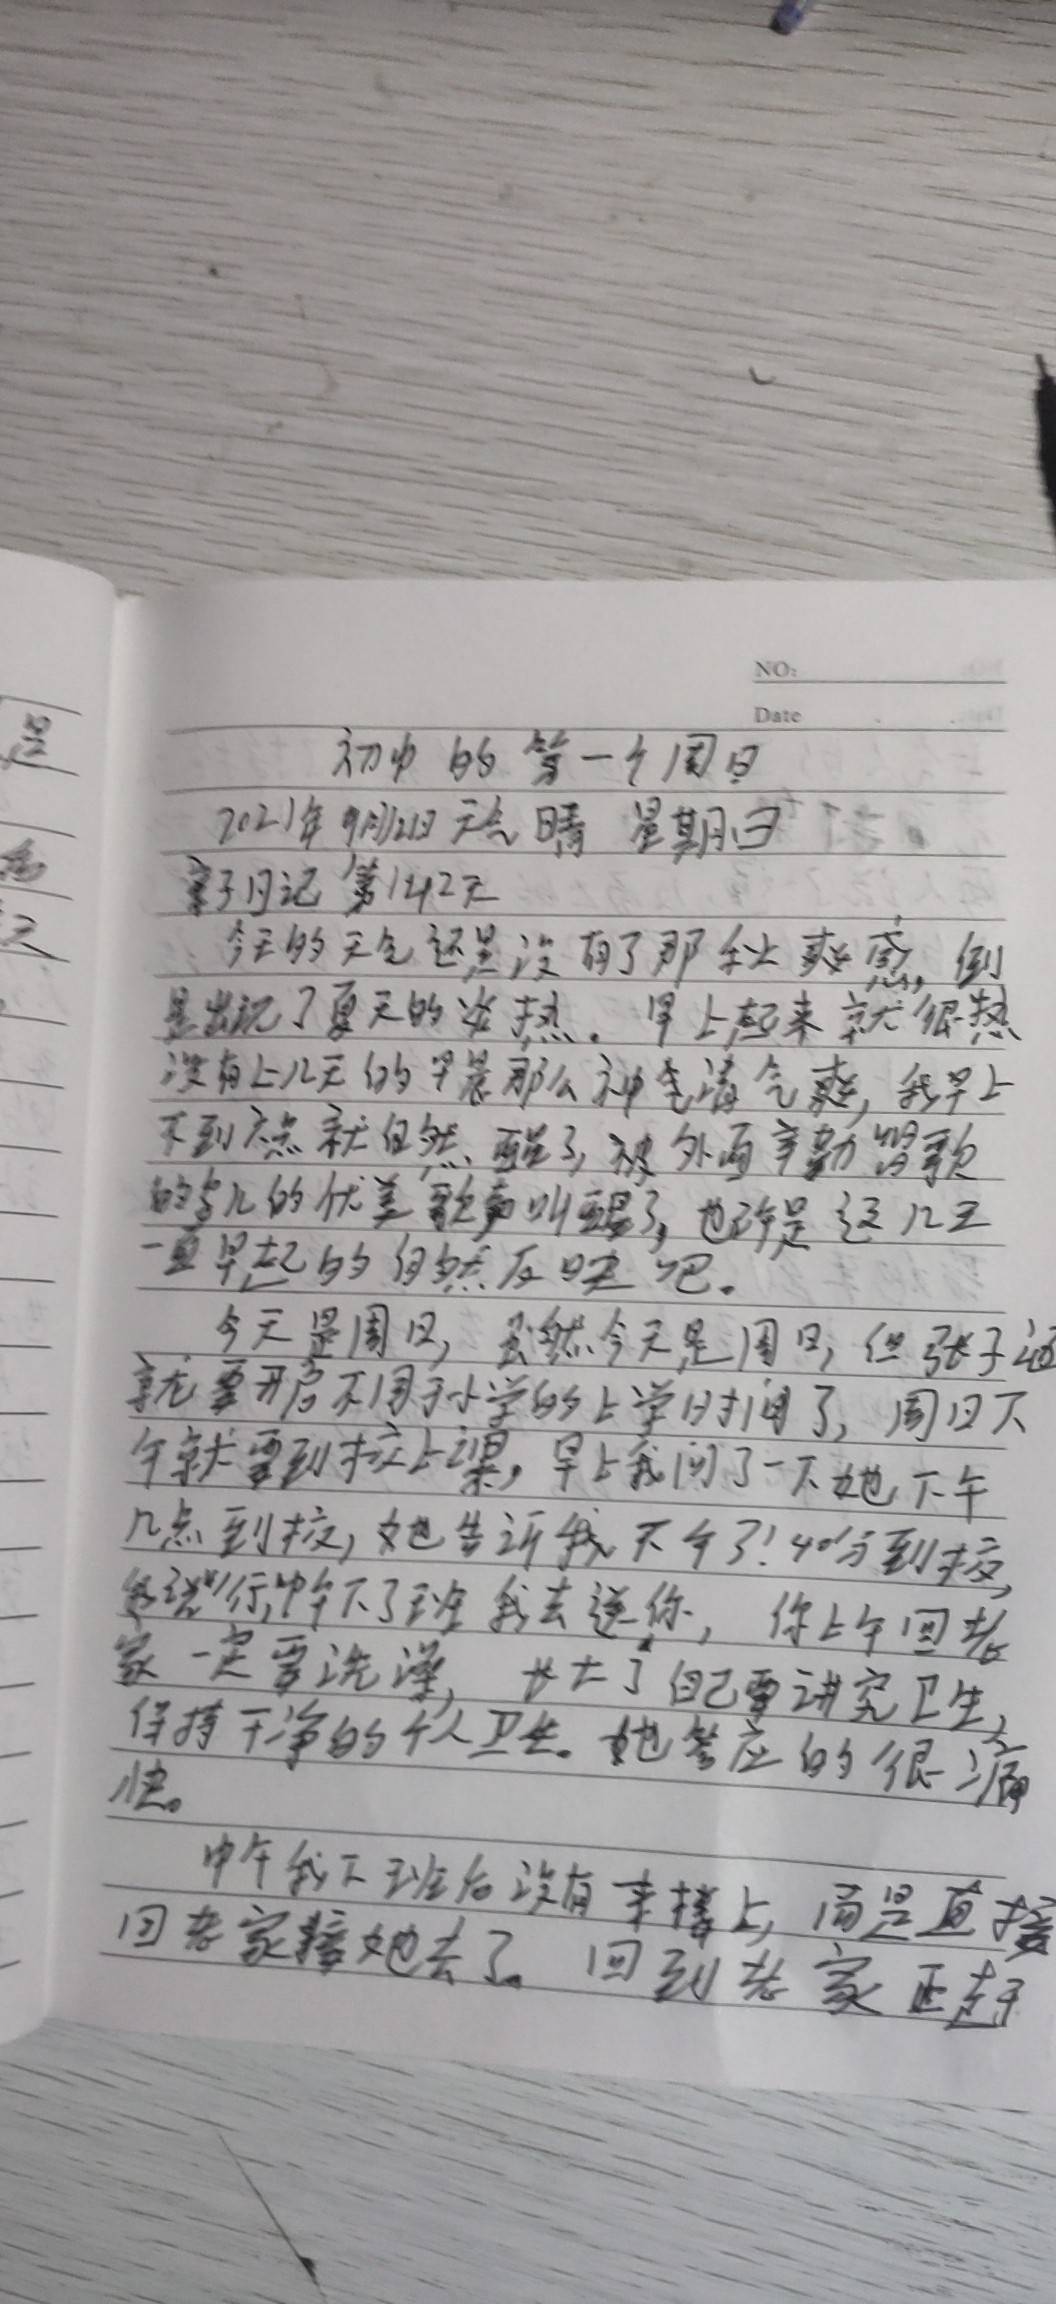 是
NO:
Date
初中的第一个周日
2021年9月12日 天气晴 星期日
亲子日记 第142天
今天的天气还是没有了那秋爽感,倒
是出现了夏天的炎热。早上起来就很热
没有上几天的早晨那么神气清气爽,我早上
不到六点就自然醒了,被外面辛勤唱歌
的鸟儿的优美歌声叫醒了,也许是这几天
一直早起的自然反映吧。
今天是周日,虽然今天是周日,但张子涵
就要开启不同于小学的上学时间了,周日下
午就要到校上课,早上我问了一下她下午
几点到校,她告诉我下午3:40分到校,
我说:"行,中午下了班我去送你,你上午回老
家一定要洗澡,长大了自己要讲究卫生,
保持干净的个人卫生。她答应的很痛
快。
中午我下班后没有来楼上,而是直接
回老家接她去了。回到老家正赶